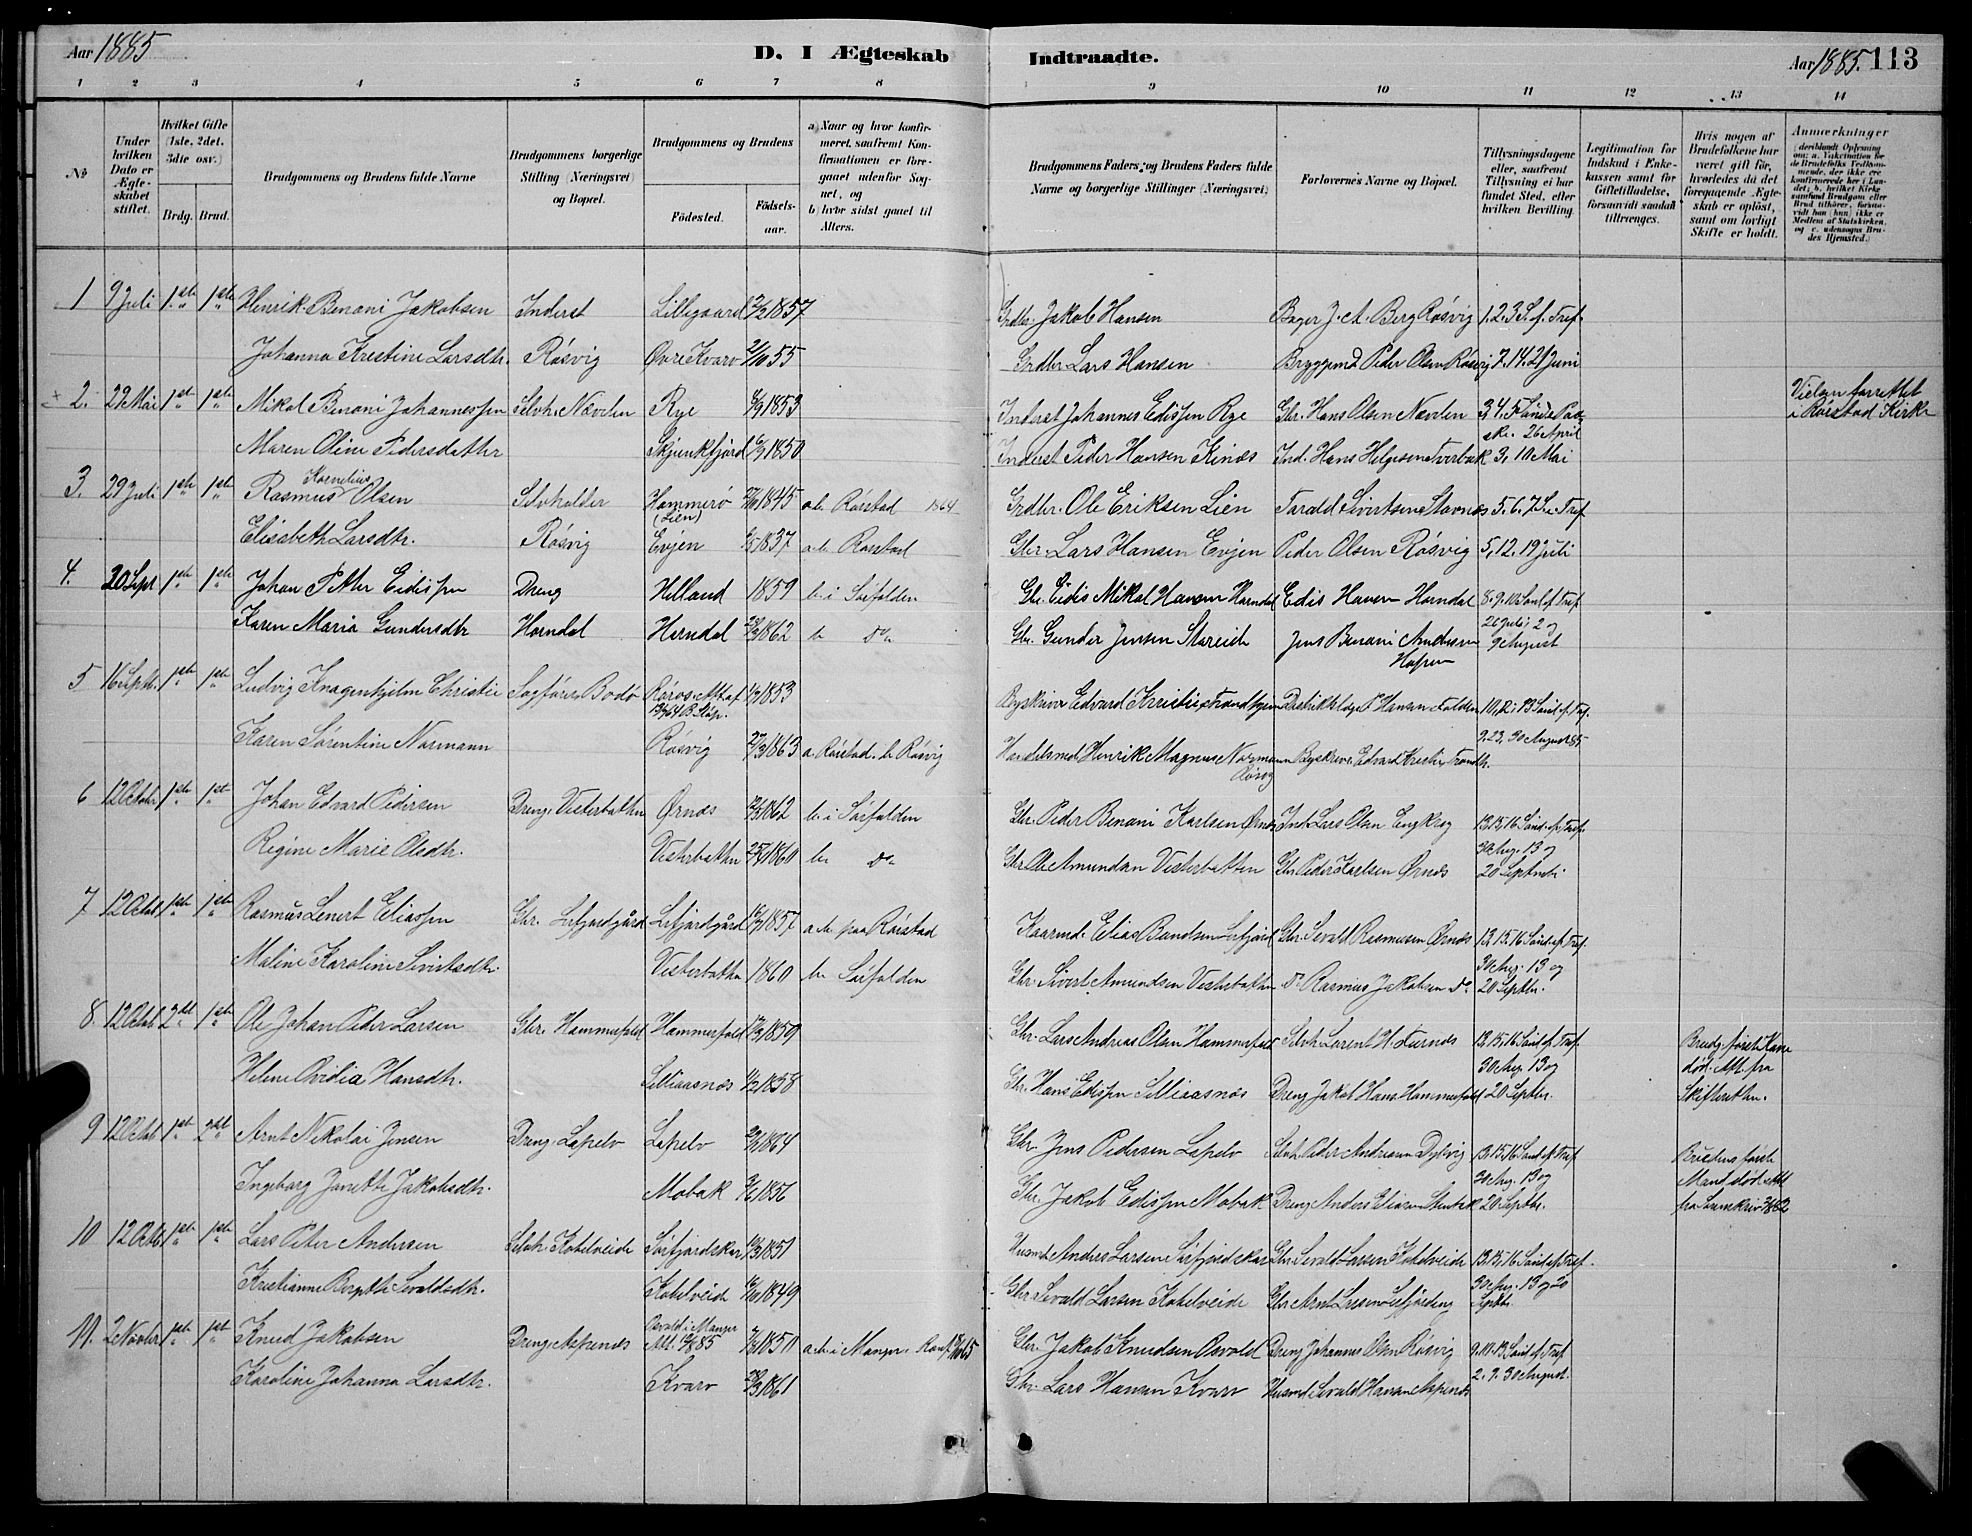 Aar 1885
D. I Ægteskab Indtraadte.
Aar 1885. 113
1 2 3 4 5 6 7 8 9 10 11 12 13 14
No
Under hvilken Dato er Ægteskabet stiftet.
Hvilket Gifte (1ste, 2det, 3die osv.)
Brdg. Brud.
Brudgommens og Brudens fulde Navne
Brudgommens borgerlige Stilling (Næringsvei) og Bopæl.
Brudgommens og Brudens
Fødested.
Fødselsaar.
a) Naar og hvor konfirmeret, saafremt Konfirmationen er foregaaet udenfor Sognet, og
b) hvor sidst gaaet til Alters.
Brudgommens Faders og Brudens Faders fulde Navne og borgerlige Stillinger (Næringsvei)
Forlovernes Navne og Bopæl.
Tillysningsdagene eller, saafremt Tillysning ei har fundet Sted, efter hvilken Bevilling.
Legitimation for Indskud i Enkekassen samt for Giftetilladelse, forsaavidt saadan tiltrænges.
Hvis nogen af Brudefolkene har været gift før, hvorledes da det foregaaende Ægteskab er opløst, samt om lovligt Skifte er holdt.
Anmærkninger (deriblandt Oplysning om: a. Vakcination for de Brudefolks Vedkommende, der ikke ere konfirmerede her i Landet; b. hvilket Kirkesamfund Brudgom eller Brud tilhører, forsaavidt han (hun) ikke er Medlem af Statskirken, og c. udensogns Brudes Hjemsted.)
1 9 Juli 1ste 1ste Henrik Benoni Jakobsen Inderst Lillegaard 1857 Grdbr. Jakob Hansen Bager J. A. Berg Røsvig 1. 2. 3 S. ef. Tref.
Johanna Kristine Larsdtr. Røsvig Øvre Kvarv 55 Grdbr Lars Hansen Bryggemd Peder Olsen Røsvig 7. 14. 21 Juni
2. 29 Mai 1ste 1ste Mikal Benoni Johannessen Selvh. Nævelen Rye 1853 Inderst Johannes Edissen Rye Gbr. Hans Olsen Nævlen 3 4. 5 Sønd. e Paaske. 26 April Vielsen forrettet i Rørstad Kirke
Maren Oline Pedersdatter Skjunkfjord 1850 Inderst Peder Hansen Kinæs Ind. Hans Helgesen Tverbak 3, 10 Mai
3. 29 Juli 1ste 1ste Rasmus Kornelius Olsen Selvholder Hammerø (Lien) 1845 a.b. Rørstad 1864 Grdbr. Ole Eriksen Lien Tarald Sivertsen Stavnæs 5. 6. 7 S. e. Tref
Elisabeth Larsdtr. Røsvig Evjen 1837 a.b. Rørstad Gbr. Lars Hansen Evjen Peder Olsen Røsvig 5, 12. 19 Juli
4. 20 Sept 1ste 1ste Johan Petter Eidissen Dreng Helland 1859 b. i Sørfolden Gbr. Eidis Mikal Hansen Horndal Edis Hansen Horndal 8. 9. 10 Sønd. ef. Tref
Karen Maria Gundersdtr Horndal Horndal 1862 b do Gbr. Gunder Jensen Storeide Jens Benoni Andersen 26 Juli 2 og 9 August
5 16 Septb. 1ste 1ste Ludvig Knagenhjelm Christie Sagfører Bodø Røros 1853 Byskriver Edvard Kristie Trondhjem Distriktslæge P Hansen Folden 10, 12. 13 Sønd. ef. Tref.
Karen Sørentine Normann Røsvig 1863 a. Rørstad. b. Røsvig Handelsmd Henrik Magnus Normann Røsvig Byskriver Edvard Kristie Trondh. 9. 23. 30 August 85
6 12 Octobr 1ste 1ste Johan Edvard Pedersen Dreng, Vesterbotten Ørnæs 1862 b. i Sørfolden Gbr. Peder Benoni Karlsen Ørnæs Ind. Lars Olsen Engkrog 13, 15, 16 Sønd. ef. Tref.
Regine Marie Olsdtr. Vesterbotten 1860 b. do Gbr. Ole Amundsen Vesterbotten Gbr Peder Karlsen Ørnæs 30 Aug. 13 og 20 Septembr
7 12 Octob 1ste 1ste Rasmus Lenert Eliassen Gbr. Lifjordgård Lifjordgård 1857 a.b. paa Rørstad Kaarmd. Elias Bendtsen Lifjord Gbr. Sevald Rasmussen Ørnæs 13. 15. 16 Sønd. ef. Tref
Maline Karoline Sivertsdtr. Vesterbotten 1860 b. Sørfolden Gbr. Sivert Amundsen Vesterbotten do Rasmus Jakobsen do 30 Aug. 13 og 20 Septbr.
8. 12 Octob. 2det 1ste Ole Johan Peder Larsen Gbr. Hammerfald Hammerfald 1850 Gbr. Lars Andreas Olsen Hammerfald Selvh. Lorent H. Furnæs 13, 15, 16 Sønd. ef. Tref Brudg. første Kone død. Att. fra Skifteretten.
Helene Ovidia Hansdtr. Selliaasnæs 1858 Gbr. Hans Edissen Selliaasnæs Dreng Jakob Hans Hammerfald 30 Aug. 13 og 20 Septbr.
9 12 Octob 1ste 2det Arnt Nikolai Jensen Dreng Lapelv Lapelv 1864 Gbr. Jens Pedersen Lapelv Selvh. Peder Andreassen Djupvig 13, 15, 16 Sønd. ef. Tref Brudens første Mand død. Att. fra
Ingeborg Janette Jakobsdtr. Mobak 1856 Gbr. Jakob Edissen Mobak Dreng Anders Eliassen 30 Aug. 13 og 20 Septbr.
10 12 Octob 1ste 1ste Lars Peter Andersen Selvh. Kobelveide Sørfjordskar 1851 Husmd. Anders Larsen Sørfjordskar Gbr. Sevald Larsen Kobelveide 13. 15, 16 Sønd. ef. Tref.
Kristianne Bergitte Sevaldsdtr. Kobelveide 1849 Gbr Sevald Larsen Kobelveide Gbr Arnt Larsen 30 Aug. 13 og 20 Septbr.
11. 2 Novbr 1ste 1ste Knud Jakobsen Dreng, Aspenæs Osvold i Manger Att. 85 1850 a.b. i Manger. Gbr. Jakob Knudsen Osvold Dreng Johannes Olsen Røsvig 9. 11. 13 Sønd. ef. Tref
Karoline Johanna Larsdtr. Kvarv 1861 Gbr. Lars Hansen Kvarv Husmd Sevald Hansen Aspenæs 2. 9. 30 August.